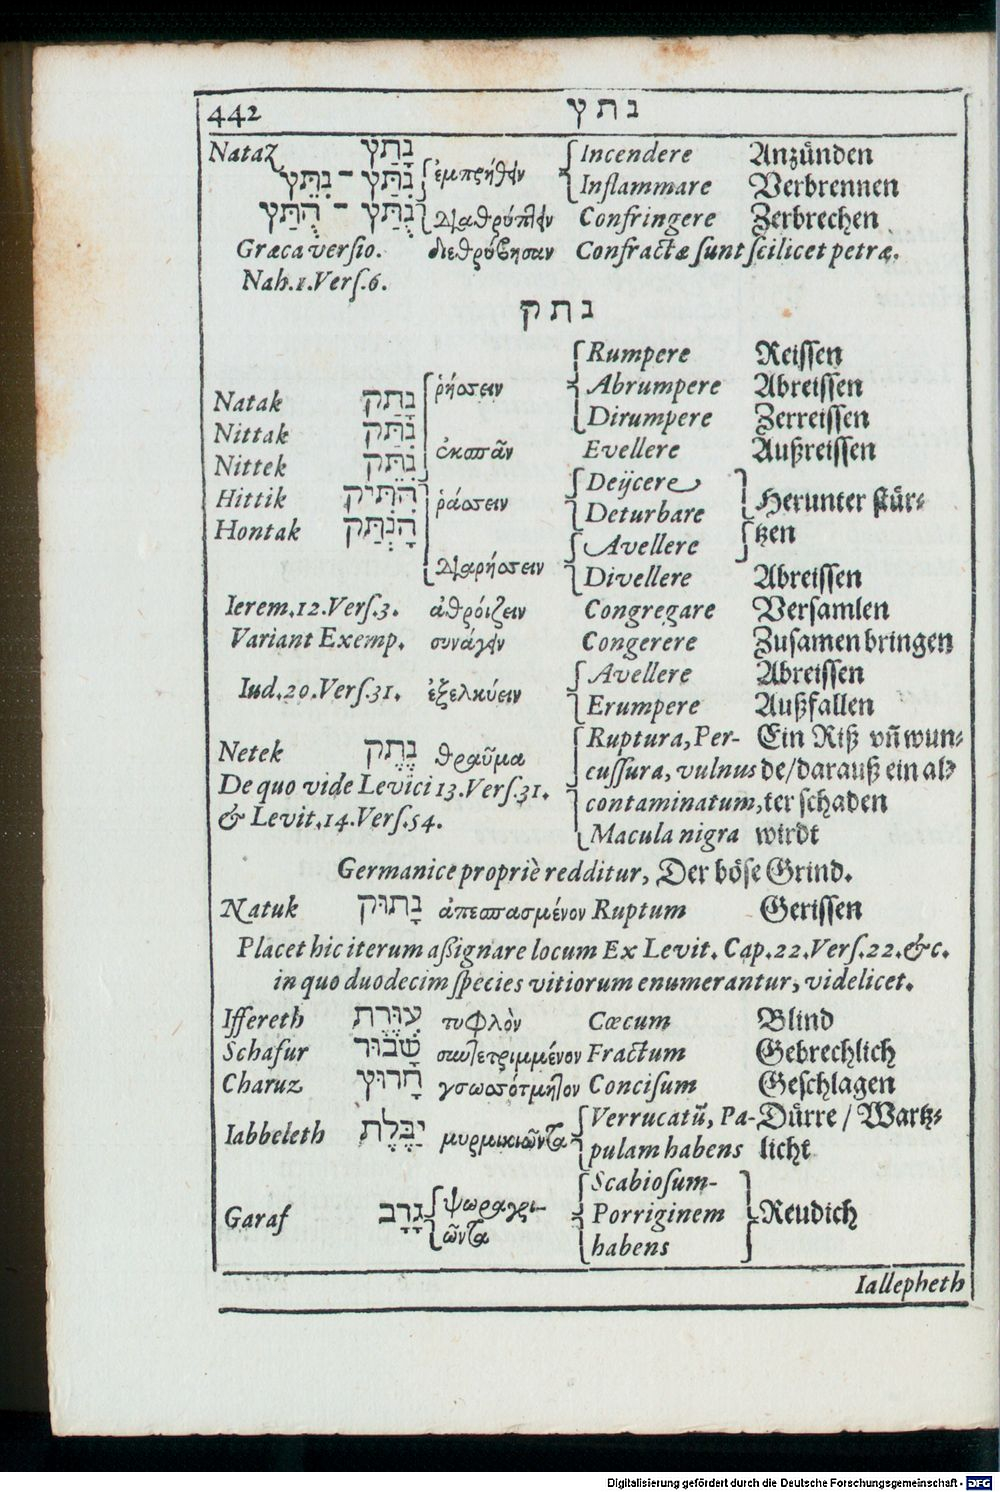 442 נתץ
Nataz נָתַץ Incendere Anzünden
נִתַּץ - נִתֵּץ ἐμπρήθειν Inflammare Verbrennen
נֻתַּץ - הֻתַּץ Διαθρύπτειν Confringere Zerbrechen
Græca versio. διεθρύβησαν Confractæ sunt scilicet petræ.
Nah.1.Vers.6.
נתק
Rumpere Reissen
ῥήσσειν Abrumpere Abreissen
Natak נָתַק Dirumpere Zerreissen
Nittak נִתַּק ἐκσπᾶν Evellere Außreissen
Nittek נִתֵּק Deijcere
Hittik הִתִּיק ῥάσσειν Deturbare Herunter stür-
Hontak הָנְתַּק Avellere tzen
Διαρήσσειν Divellere Abreissen
Ierem.12.Vers.3. ἀθροίζειν Congregare Versamlen
Variant Exemp. συνάγειν Congerere Zusamen bringen
Avellere Abreissen
Iud.20.Vers.31. ἐξελκύειν Erumpere Außfallen
Netek נֶתֶק θραῦμα Ruptura, Per- Ein Riß vñ wun-
De quo vide Levici 13.Vers.31. cussura, vulnus de/darauß ein al-
& Levit.14.Vers.54. contaminatum, ter schaden
Macula nigra wirdt
Germanice propriè redditur, Der böse Grind.
Natuk נָתוּק ἀπεσπασμένον Ruptum Gerissen
Placet hic iterum aßignare locum Ex Levit. Cap.22.Vers.22.&c.
in quo duodecim species vitiorum enumerantur, videlicet.
Iffereth עִוֶּרֶת τυφλὸν Cœcum Blind
Schafur שָׁבוּר συντετριμμένον Fractum Gebrechlich
Charuz חָרוּץ Concisum Geschlagen
Iabbeleth יַבֶּלֶת μυρμικιῶντα Verrucatū, Pa- Dürre / Wartz-
pulam habens licht
Scabiosum-
Garaf גָרָב ψωραγρι- Porriginem Reudich
ῶντα habens
Iallepheth
Digitalisierung gefördert durch die Deutsche Forschungsgemeinschaft - DFG